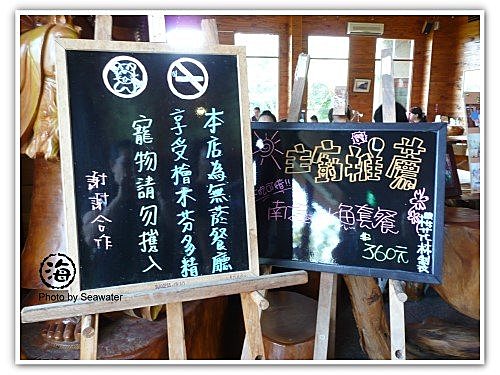 本店為無菸餐廳
享受檜木芬多精
寵物請勿攜入
謝謝合作
主廚推薦
南
魚套餐
360元
海
Photo by Seawater